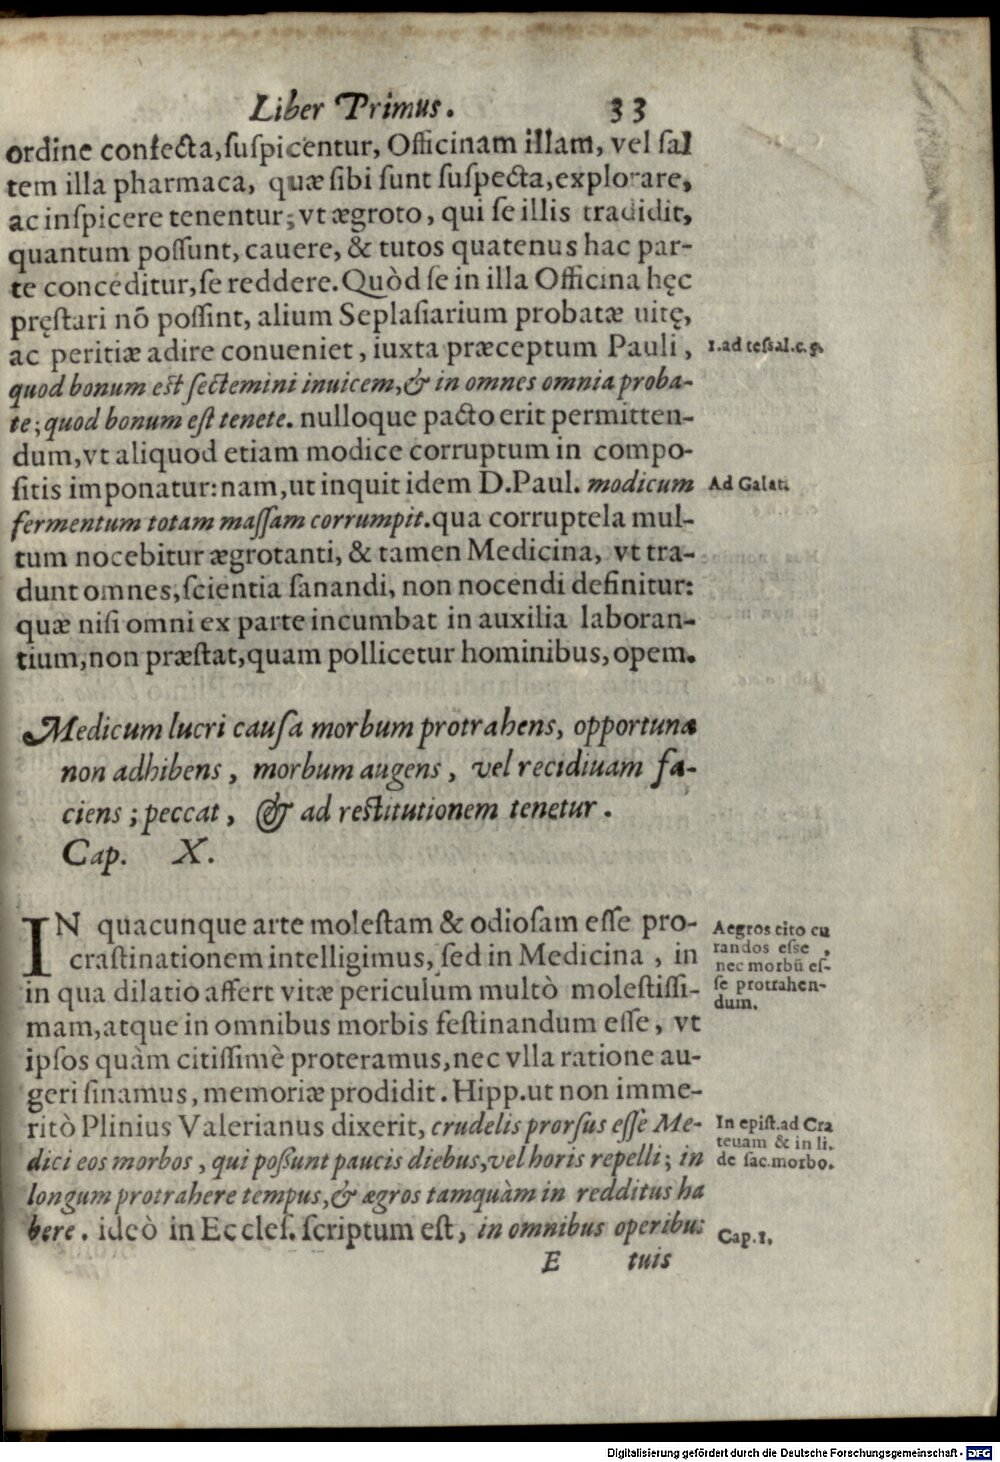 Liber Primus. 33
ordine confecta, suspicentur, Officinam illam, vel sal
tem illa pharmaca, quæ sibi sunt suspecta, explorare,
ac inspicere tenentur; vt ægroto, qui se illis tradidit,
quantum possunt, cauere, & tutos quatenus hac par-
te conceditur, se reddere. Quòd se in illa Officina hęc
pręstari nō possint, alium Seplasiarium probatæ uitę,
ac peritiæ adire conueniet, iuxta præceptum Pauli,
1. ad tessal. c. 5.
quod bonum est sectemini inuicem, & in omnes omnia proba-
te; quod bonum est tenete. nulloque pacto erit permitten-
dum, vt aliquod etiam modice corruptum in compo-
sitis imponatur: nam, ut inquit idem D. Paul. modicum
Ad Galat.
fermentum totam massam corrumpit. qua corruptela mul-
tum nocebitur ægrotanti, & tamen Medicina, vt tra-
dunt omnes, scientia sanandi, non nocendi definitur:
quæ nisi omni ex parte incumbat in auxilia laboran-
tium, non præstat, quam pollicetur hominibus, opem.
Medicum lucri causa morbum protrahens, opportuna
non adhibens, morbum augens, vel recidiuam fa-
ciens; peccat, & ad restitutionem tenetur.
Cap. X.
IN quacunque arte molestam & odiosam esse pro-
crastinationem intelligimus, sed in Medicina, in
in qua dilatio affert vitæ periculum multò molestissi-
mam, atque in omnibus morbis festinandum esse, vt
ipsos quàm citissimè proteramus, nec vlla ratione au-
geri sinamus, memoriæ prodidit. Hipp. ut non imme-
ritò Plinius Valerianus dixerit, crudelis prorsus esse Me-
dici eos morbos, qui possunt paucis diebus, vel horis repelli; in
longum protrahere tempus, & ægros tamquàm in redditus ha
bere. ideò in Eccles. scriptum est, in omnibus operibus
Aegros cito cu
randos esse,
nec morbū es-
se protrahen-
dum.
In epist. ad Cra
teuam & in li.
de sac. morbo.
Cap. 1.
E tuis
Digitalisierung gefördert durch die Deutsche Forschungsgemeinschaft - DFG